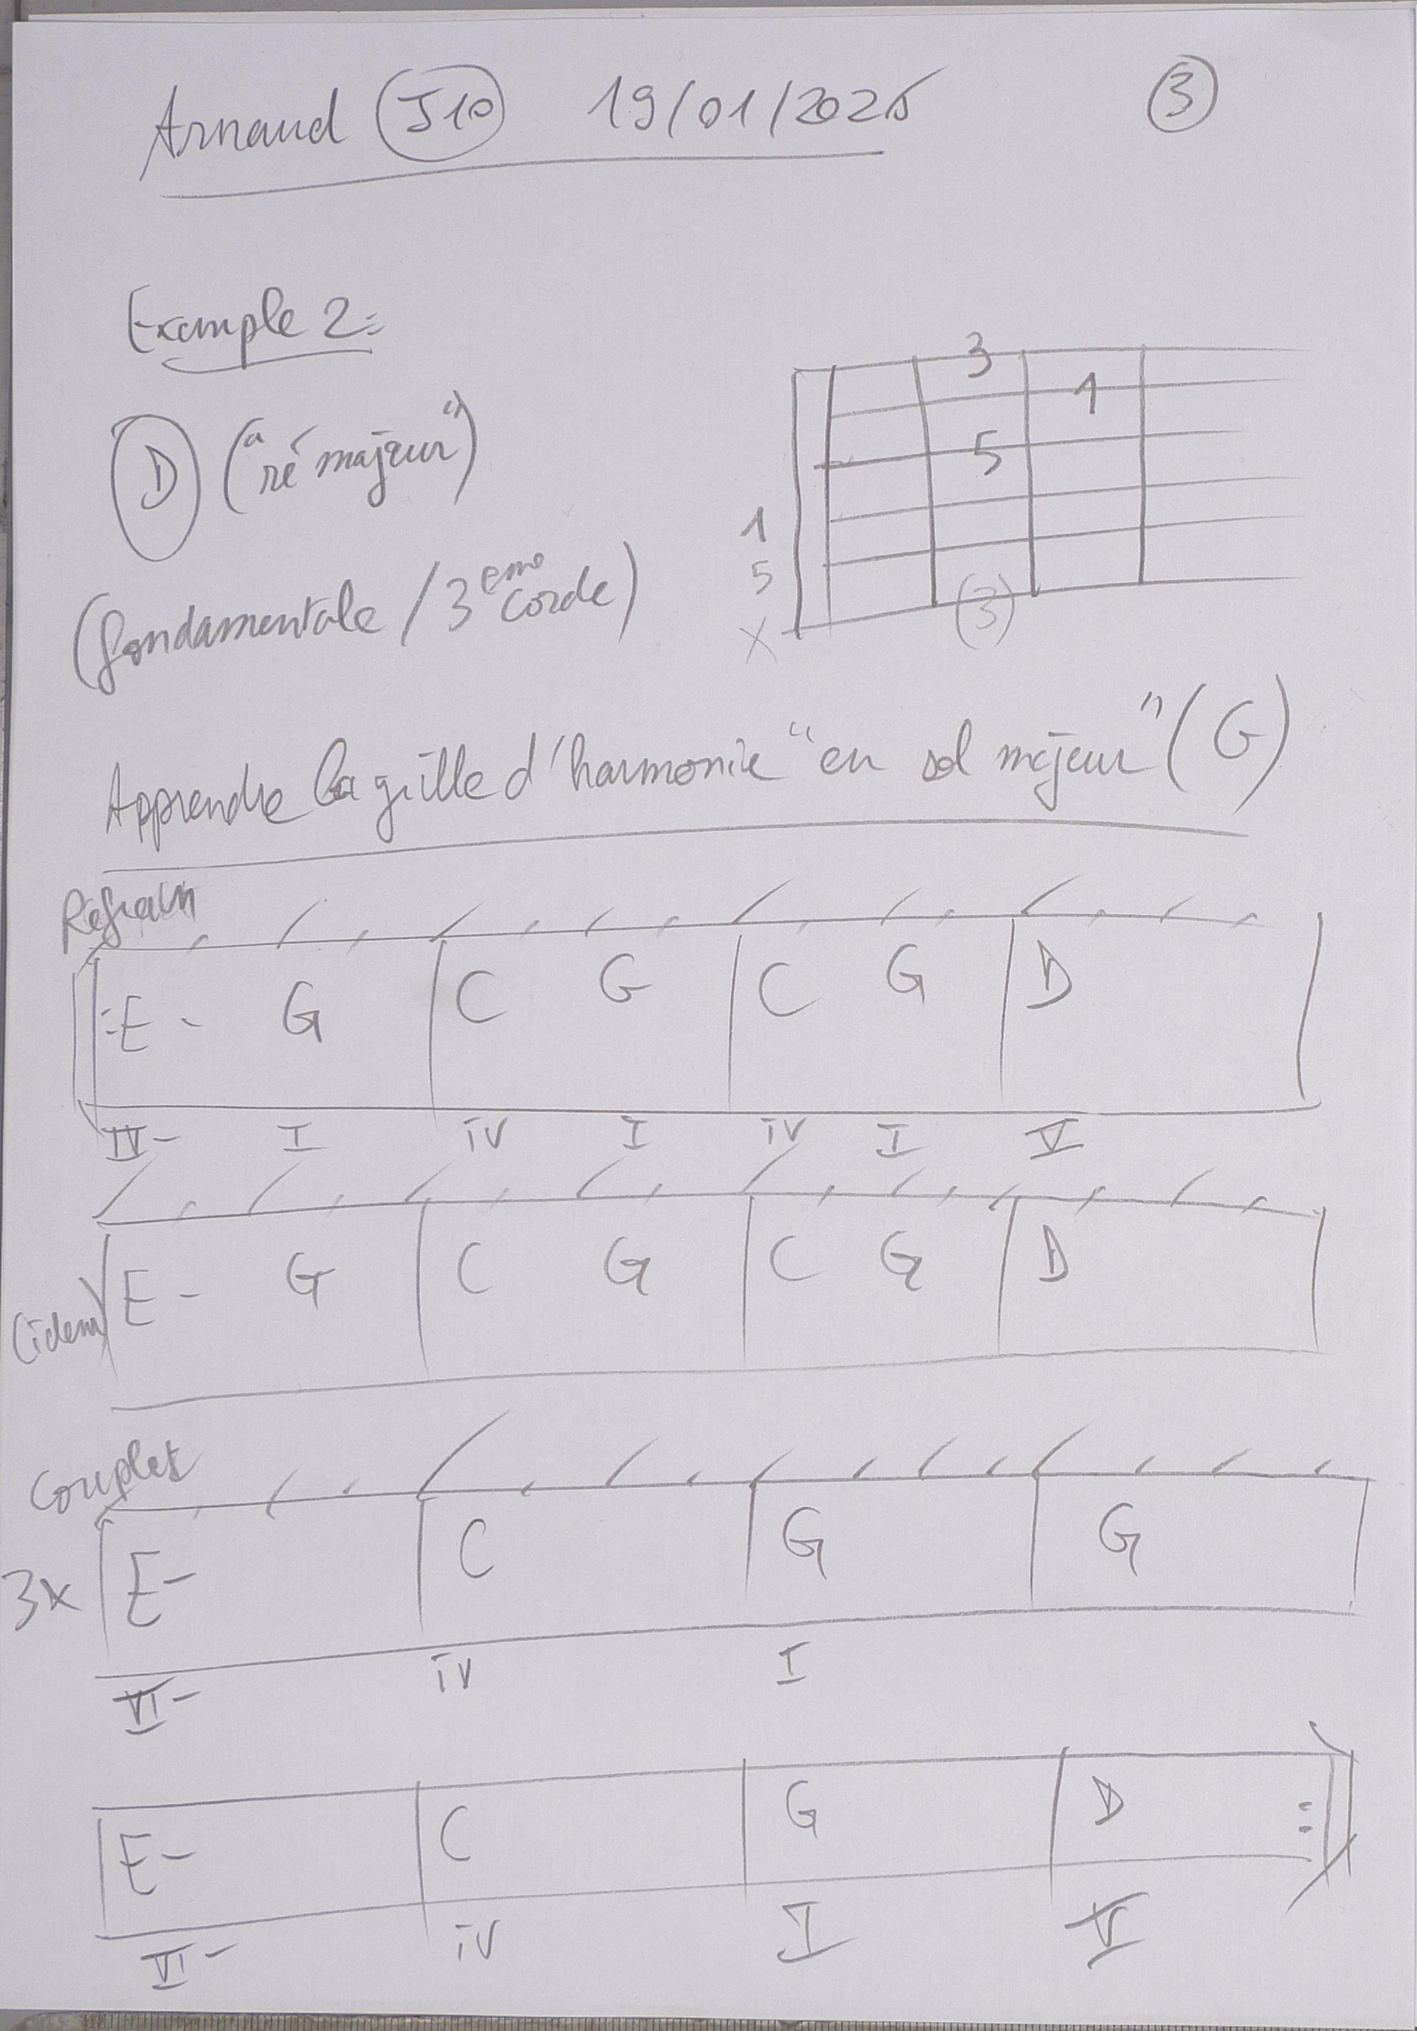 Arnaud J10 19/01/2025 3
Example 2:
D ("ré majeur")
(fondamentale / 3eme corde)
3
1
5
1
5
X (3)
Apprendre la grille d'harmonie "en sol majeur" (G)
Refrain
E- G C G C G D
IV- I IV I IV I V
(idem) E- G C G C G D
Couplet
3x E- C G G
VI- IV I
E- C G D :
VI- IV I V